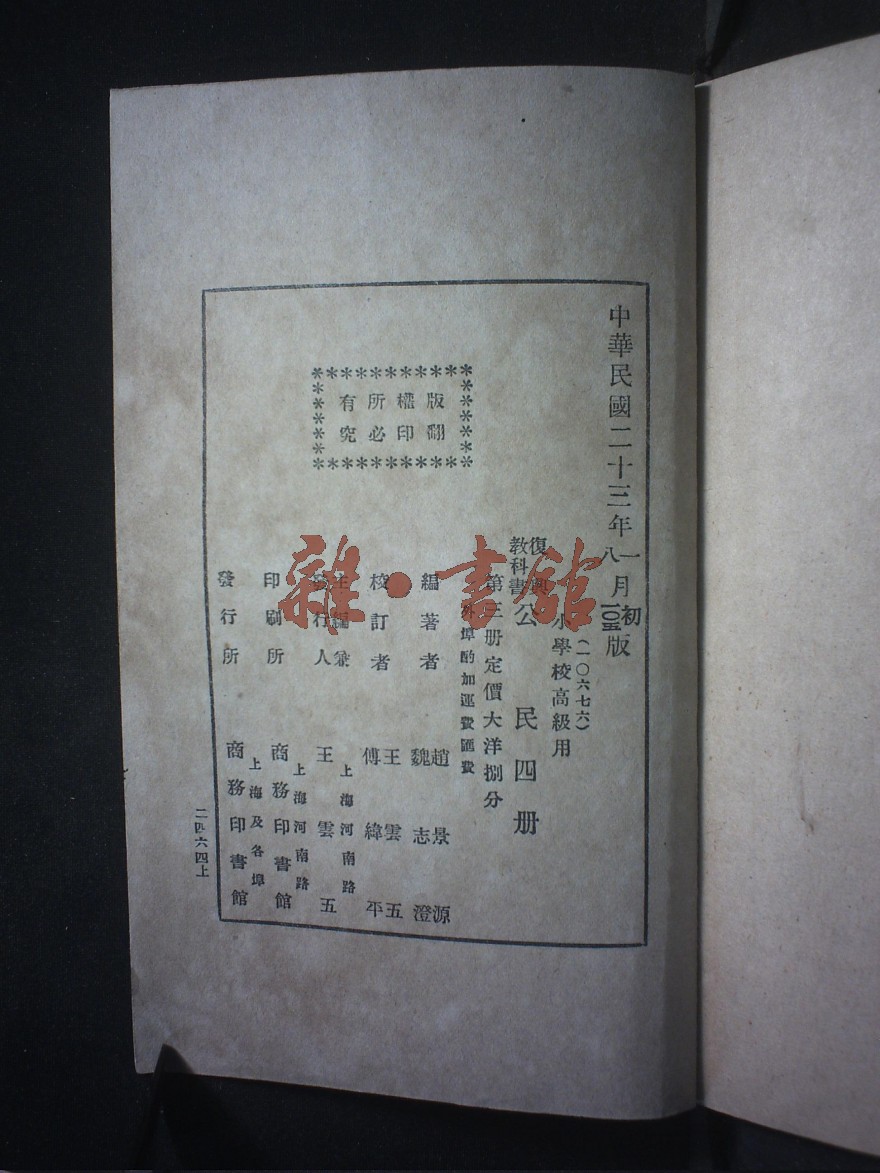 中華民國二十三年一月初版
八月105版
(一〇六七六)
小學校高級用
復興
教科書
公民四册
第三册定價大洋捌分
外埠酌加運費匯費
版權所有
翻印必究
編著者
趙景源
魏志澄
校訂者
王雲五
傅緯平
主編兼
發行人
上海河南路
王雲五
印刷所
上海河南路
商務印書館
發行所
上海及各埠
商務印書館
二四六四上
雜·書館